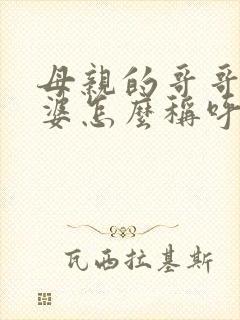 母親的哥哥
婆怎麼稱呼
瓦西拉基斯